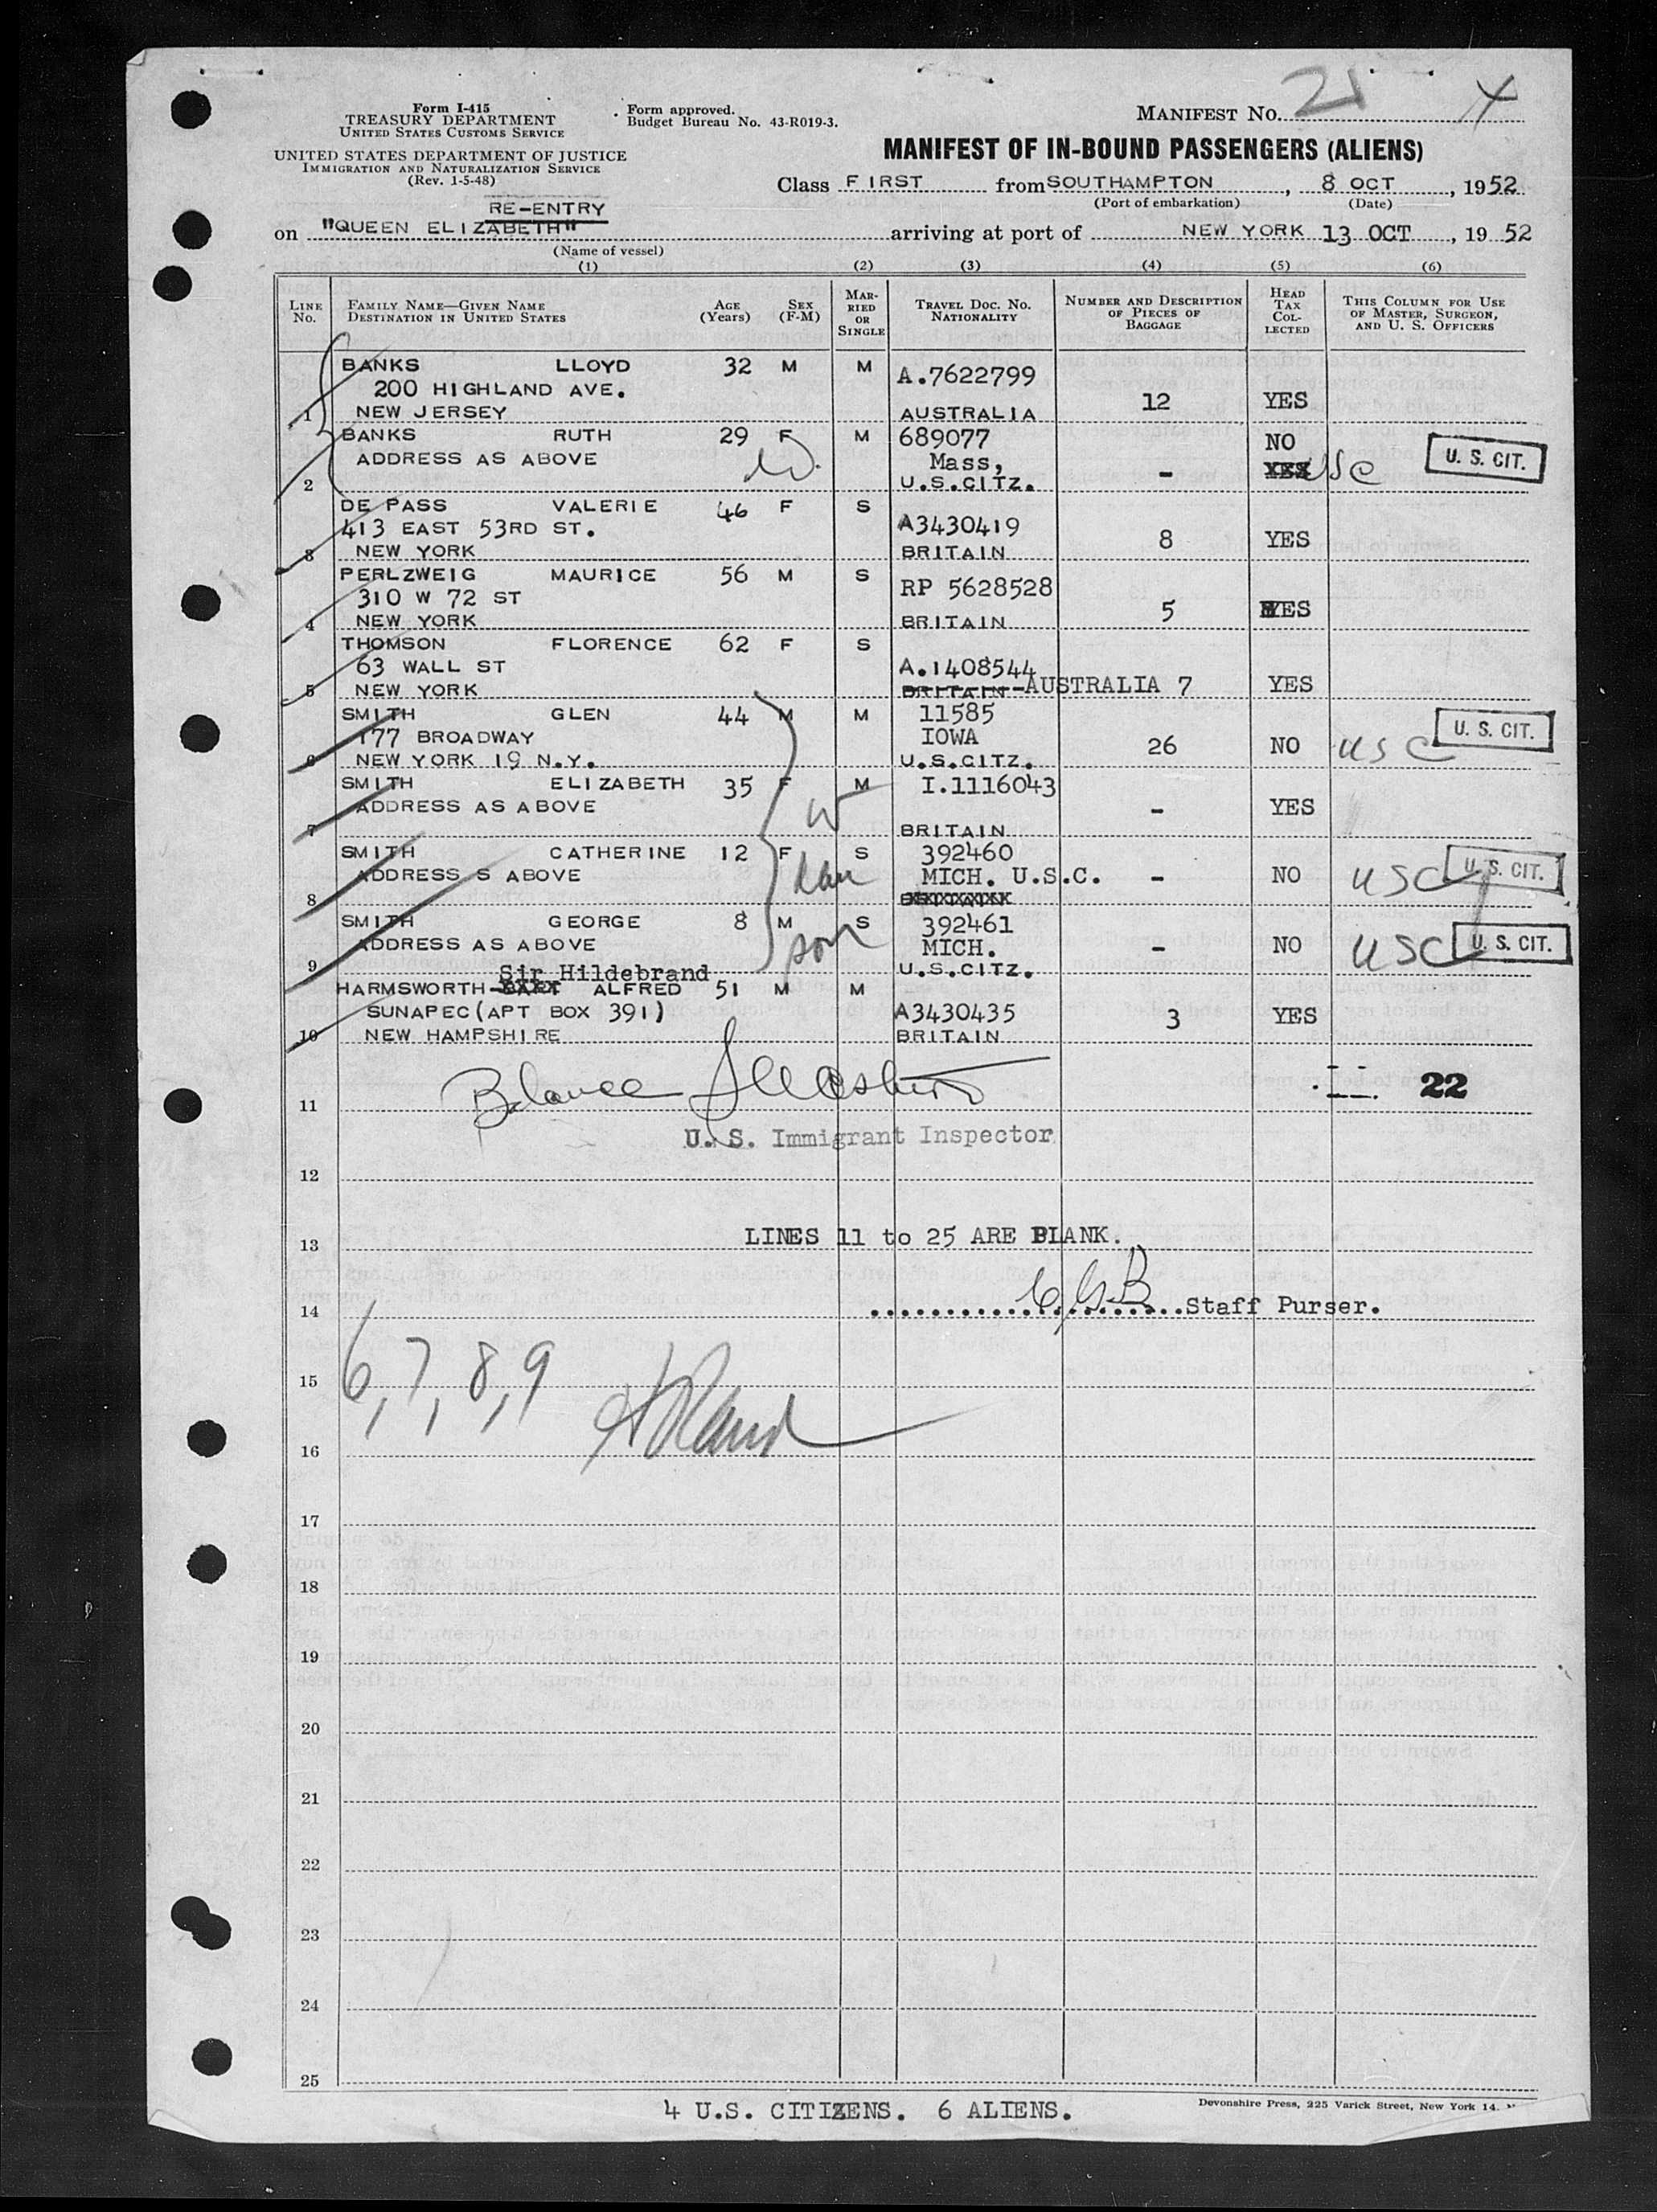 Form I-415
TREASURY DEPARTMENT
UNITED STATES CUSTOMS SERVICE
Form approved.
Budget Bureau No. 43-R019-3.
MANIFEST NO. 21 4
UNITED STATES DEPARTMENT OF JUSTICE
IMMIGRATION AND NATURALIZATION SERVICE
(Rev. 1-5-48)
MANIFEST OF IN-BOUND PASSENGERS (ALIENS)
Class FIRST from SOUTHAMPTON, 8 OCT, 1952
(Port of embarkation) (Date)
RE-ENTRY
on "QUEEN ELIZABETH" arriving at port of NEW YORK 13 OCT, 19 52
(Name of vessel)
(1) (2) (3) (4) (5) (6)
LINE No. FAMILY NAME—GIVEN NAME DESTINATION IN UNITED STATES AGE (Years) SEX (F-M) MARRIED OR SINGLE TRAVEL DOC. NO. NATIONALITY NUMBER AND DESCRIPTION OF PIECES OF BAGGAGE HEAD TAX COLLECTED THIS COLUMN FOR USE OF MASTER, SURGEON, AND U. S. OFFICERS
BANKS LLOYD 32 M M A.7622799
200 HIGHLAND AVE.
1 NEW JERSEY AUSTRALIA 12 YES
BANKS RUTH 29 F M 689077 NO
ADDRESS AS ABOVE W. Mass, - YES USC U. S. CIT.
2 U.S.CITZ.
DE PASS VALERIE 46 F S
413 EAST 53RD ST. A3430419 8 YES
3 NEW YORK BRITAIN
PERLZWEIG MAURICE 56 M S RP 5628528
310 W 72 ST 5 YES
4 NEW YORK BRITAIN
THOMSON FLORENCE 62 F S
63 WALL ST A.1408544
5 NEW YORK BRITAIN-AUSTRALIA 7 YES
SMITH GLEN 44 M M 11585
177 BROADWAY IOWA 26 NO USC U. S. CIT.
6 NEW YORK 19 N.Y. U.S.CITZ.
SMITH ELIZABETH 35 F M I.1116043
ADDRESS AS ABOVE W - YES
7 BRITAIN
SMITH CATHERINE 12 F S 392460
ADDRESS S ABOVE dau MICH. U.S.C. - NO USC U. S. CIT.
8
SMITH GEORGE 8 M S 392461
ADDRESS AS ABOVE son MICH. - NO USC U. S. CIT.
9 U.S.CITZ.
Sir Hildebrand
HARMSWORTH ALFRED 51 M M
SUNAPEC(APT BOX 391) A3430435 3 YES
10 NEW HAMPSHIRE BRITAIN
11 Balance 22
U. S. Immigrant Inspector
12
LINES 11 to 25 ARE BLANK.
13
14 CGB Staff Purser.
15 6, 7, 8, 9
16
17
18
19
20
21
22
23
24
25
4 U.S. CITIZENS. 6 ALIENS.
Devonshire Press, 225 Varick Street, New York 14.